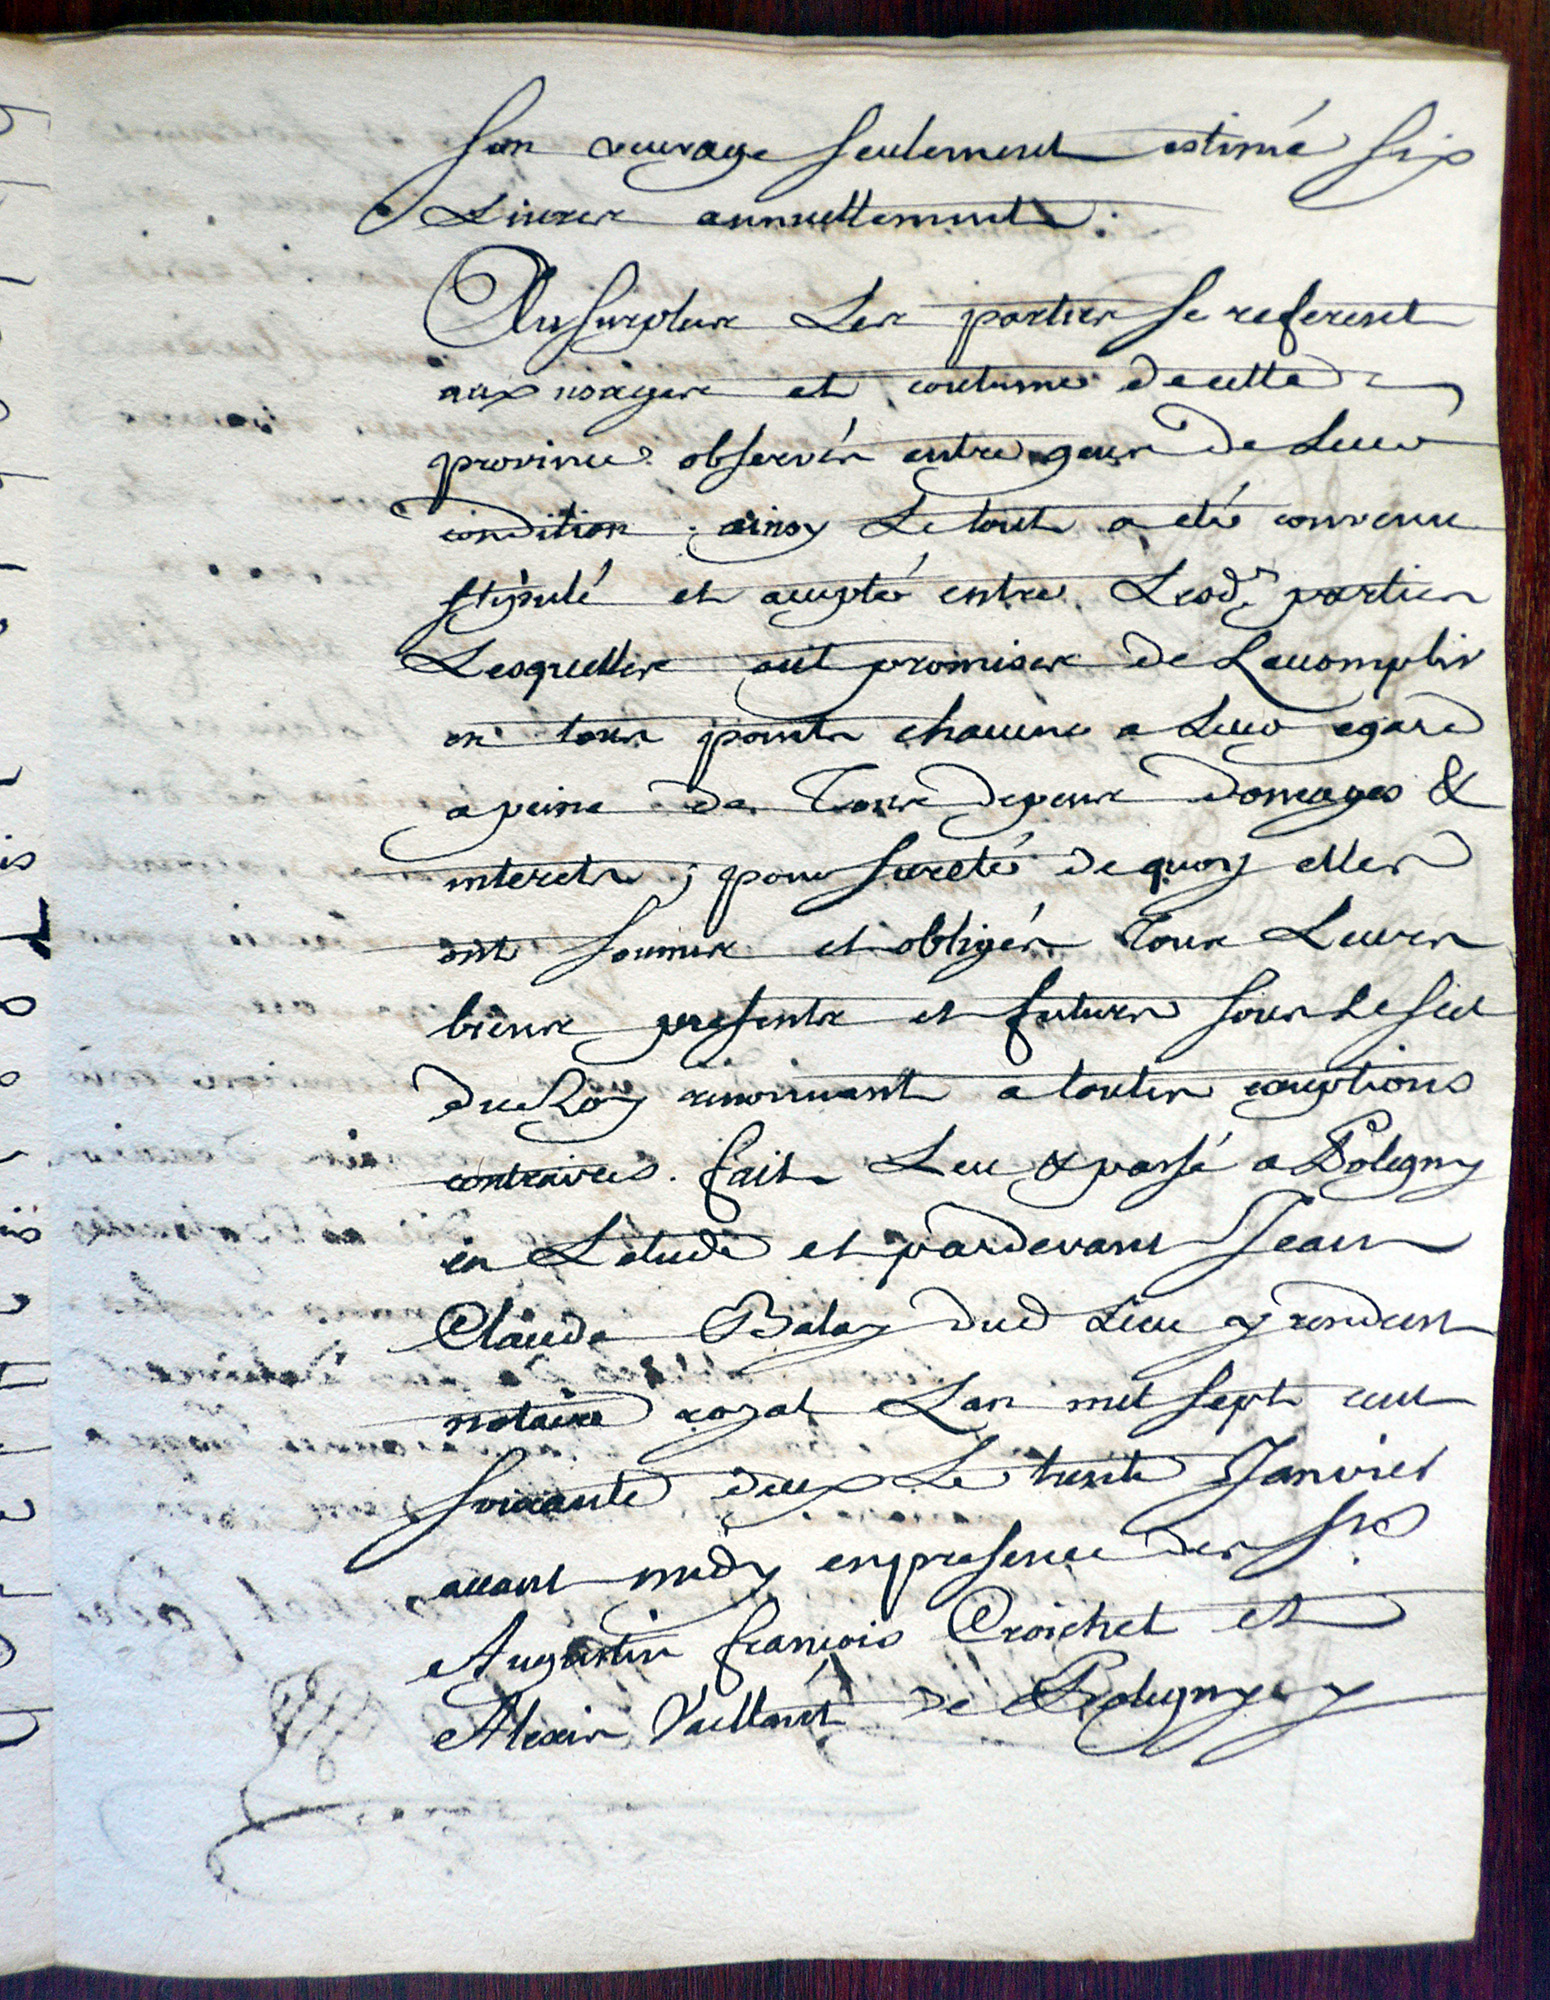 son ouvrage seulement estimé six
Livres annuellement.
Ausurplus Les parties se referent
aux usages et coutume decette
province observés entre gens de Leur
condition. ainsy Le tout a eté convenu
stipulé et accepté entre Lesd. parties
Lesquelles ont promises de Laccomplir
en tous points chacune a Leur egard
a peine de Tous depens domages &
interets ; pour sureté dequoy elles
ont soumis et obligés Tous Leurs
biens presents et futurs sous Le scel
du Roy renonceant a toutes exceptions
contraires. fait Leu & passé a Poligny
en Letude et pardevant Jean
Claude Balay dud Lieu y residant
notaire royal Lan mil sept cent
soixante deux Le trente Janvier
avant midy enpresence des srs
Augustin françois Croichet et
Alexis Vaillant de Poligny